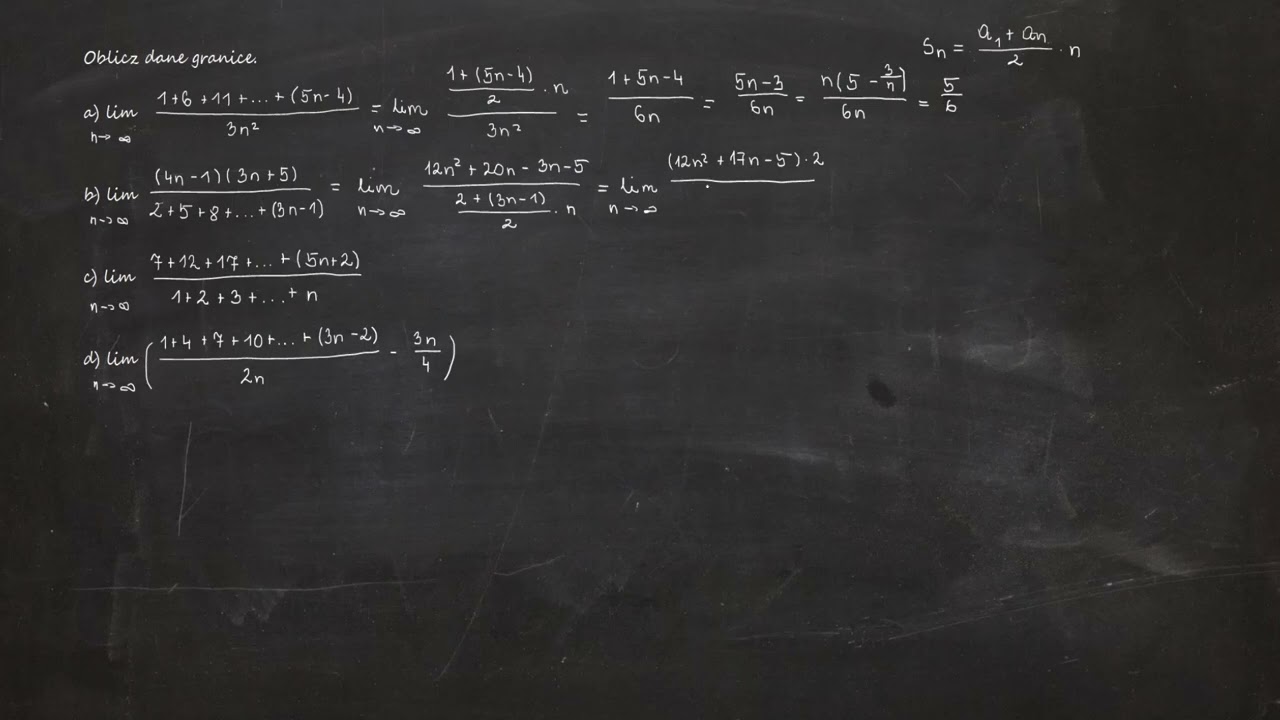 Oblicz dane granice.
S_n = (a_1 + a_n)/2 · n
a) lim_{n→∞} (1+6+11+...+(5n-4))/(3n²) = lim_{n→∞} ((1+(5n-4))/2 · n)/(3n²) = (1+5n-4)/(6n) = (5n-3)/(6n) = (n(5 - 3/n))/(6n) = 5/6
b) lim_{n→∞} ((4n-1)(3n+5))/(2+5+8+...+(3n-1)) = lim_{n→∞} (12n²+20n-3n-5)/((2+(3n-1))/2 · n) = lim_{n→∞} (12n²+17n-5)·2
c) lim_{n→∞} (7+12+17+...+(5n+2))/(1+2+3+...+n)
d) lim_{n→∞} ((1+4+7+10+...+(3n-2))/(2n) - 3n/4)